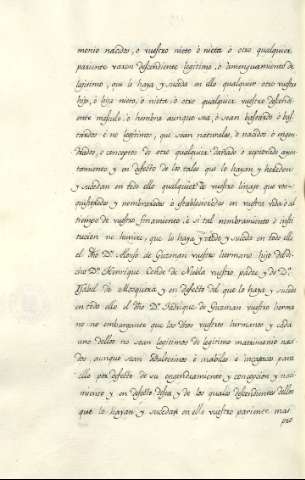 monio nacidos, o vuestro nieto ó nieta ó otro qualquier
pariente varon descendiente legitimo, o demenguamiento de
legitimo, que lo haya y suceda en ello qualquier otro vuestro
hijo, ó hija nieto, ó nieta, ó otro qualquier vuestro descendi-
ente másculo, ó hembra aunque sea, ó sean bastardo ó bas-
tardos ó no legitimos, que sean naturales, ó nacidos ó ingen-
drados, ó conceptos de otro qualquier dañado ó reprobado ayun-
tamiento, y en defecto de los tales que lo hayan, y hereden
y sucedan en todo ello qualquier de vuestro linaje que vos
quisieredes y nombraredes ó establecieredes en vuestra vida ó al
tiempo de vuestro finamiento, ó si tal nombramiento ó insti-
tucion no hiciere, que lo haya, herede, y suceda en todo ello
el dho Dn. Alonso de Guzman vuestro hermano hijo del di-
cho Dn. Henrrique Conde de Niebla vuestro padre, y de Dª.
Isabel de Mosquera, y en defecto del que lo haya y suceda
en todo ello el dho Dn. Fadrique de Guzman vuestro herma
no no embargante que los dhos vuestros hermanos y cada
uno dellos no sean legitimos de legitimo matrimonio naci-
dos aunque sean adulterinos ó inabiles é incapaces para
ello por defecto de su engendramiento y concepcion y naci-
miento y en defecto destos, y de los quales descendientes dellos
que lo hayan y sucedan en ello vuestro pariente mas
pro